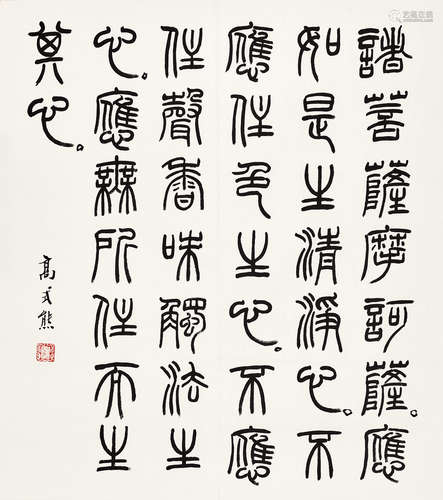 諸菩薩摩訶薩。應
如是生清淨心。不
應住色生心。不應
住聲香味觸法生
心。應無所住而生
其心。
高式熊